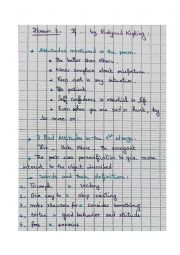 Lesson 3: If... by Rudyard Kipling.
Attitudes mentioned in the poem:
Be better than others.
Never complain about misfortune.
Keep cool in any situation
Be patient
Self confidence is essential in life
Even when you are sad or happy, don't
show it.
3 Bad Attitudes in the 1st stanza:
Lies - Hate - the arrogant
The poet uses personification to give more
interest to the object described
words and their definitions:
1. Triumph = victory
2. Give way to = stop resisting
3. make allowance for = consider something
4. virtue = good behavior and attitude
5. foes = enemies